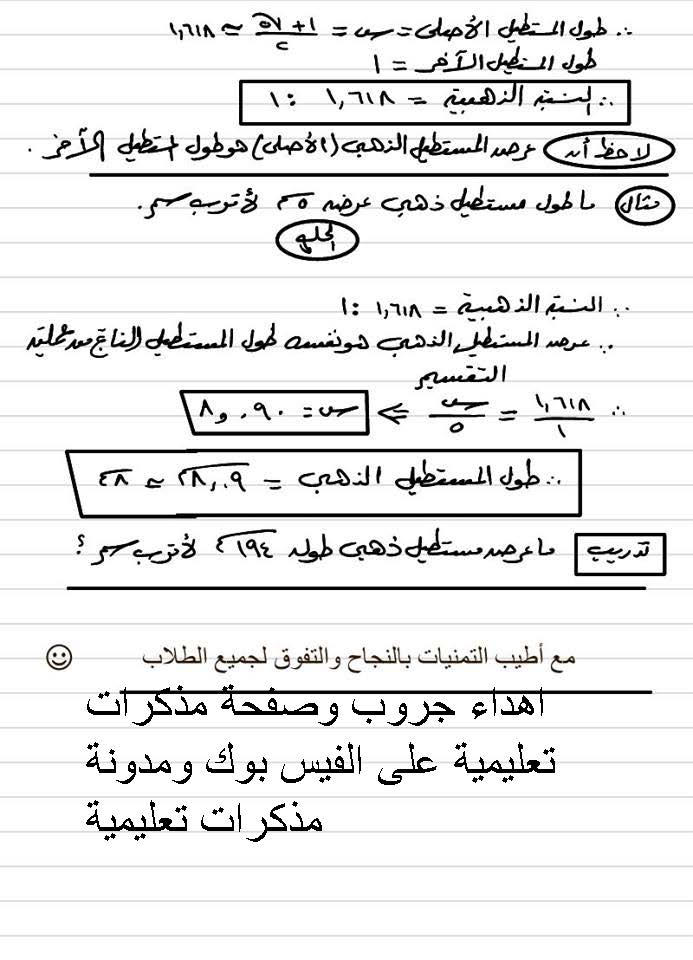 ∴ طول المستطيل الأصلى = س = (١ + √٥) / ٢ ≃ ١,٦١٨
طول المستطيل الآخر = ١
∴ النسبة الذهبية = ١,٦١٨ : ١
لاحظ أن عرض المستطيل الذهبى (الأصلى) هو طول المستطيل الآخر .
مثال ما طول مستطيل ذهبى عرضه ٥ لأقرب سم .
الحل
∵ النسبة الذهبية = ١,٦١٨ : ١
∵ عرض المستطيل الذهبى هو نفسه طول المستطيل الناتج من عملية
التقسيم
∴ ١,٦١٨ / ١ = س / ٥ ⇐ س = ٨,٠٩٠
∴ طول المستطيل الذهبى = ٨,٠٩ ≃ ٨
تدريب ما عرض مستطيل ذهبى طوله ١٩٤ لأقرب سم ؟
مع أطيب التمنيات بالنجاح والتفوق لجميع الطلاب ☺
اهداء جروب وصفحة مذكرات
تعليمية على الفيس بوك ومدونة
مذكرات تعليمية